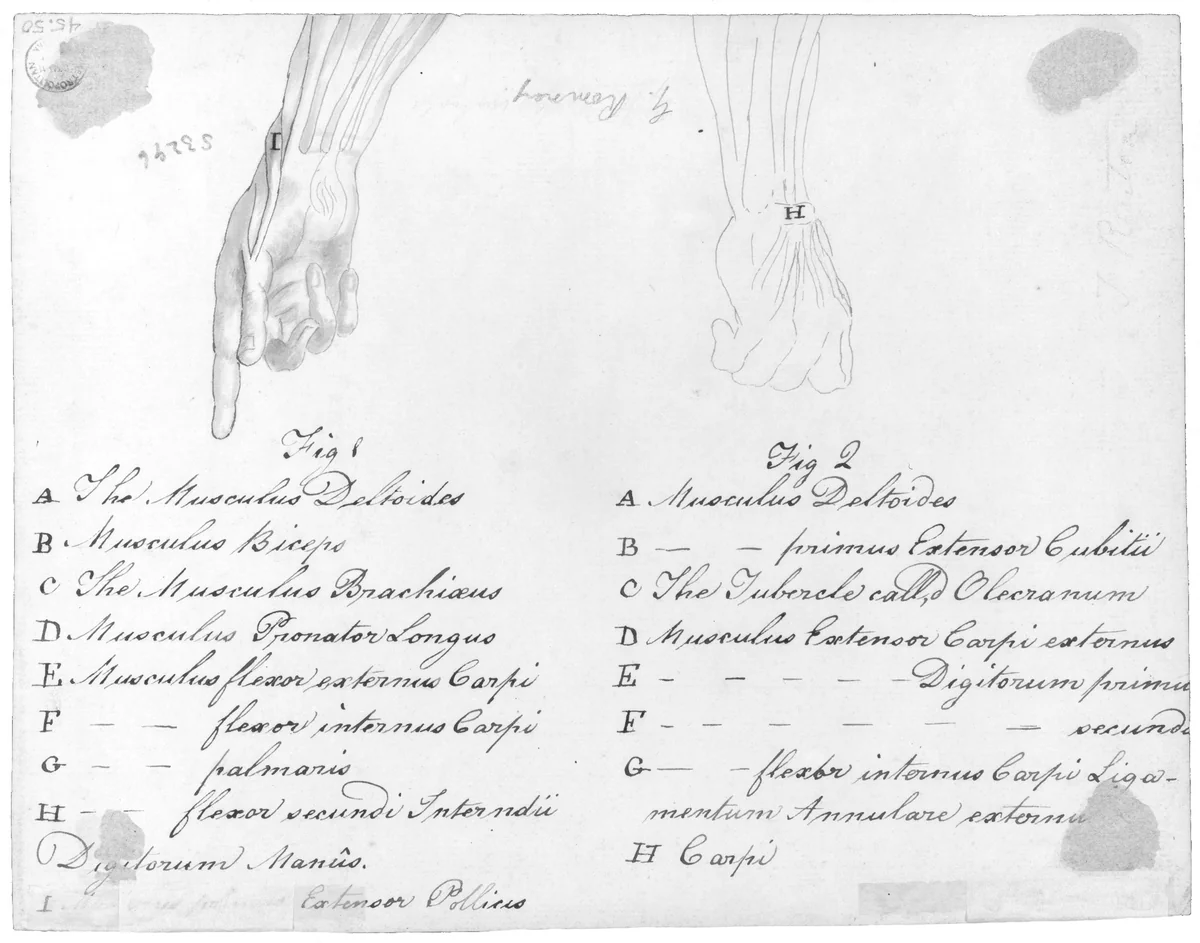 45.50
I
G. Romney
53296
H
Fig 1
A The Musculus Deltoides
B Musculus Biceps
C The Musculus Brachiæus
D Musculus Pronator Longus
E Musculus flexor externus Carpi
F — — flexor internus Carpi
G — — palmaris
H — — flexor secundi Interndii
Digitorum Manûs.
I Extensor Pollicis
Fig 2
A Musculus Deltoides
B — — primus Extensor Cubitii
C The Tubercle call,d Olecranum
D Musculus Extensor Carpi externus
E - - - - - Digitorum primu
F - - - - - - secundi
G — - flexor internus Carpi Liga-
mentum Annulare externu
H Carpi